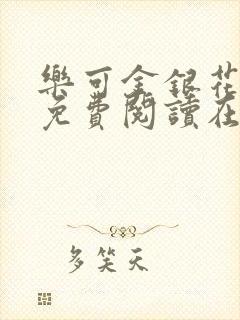 樂可金銀花
免費閱讀在
多笑天